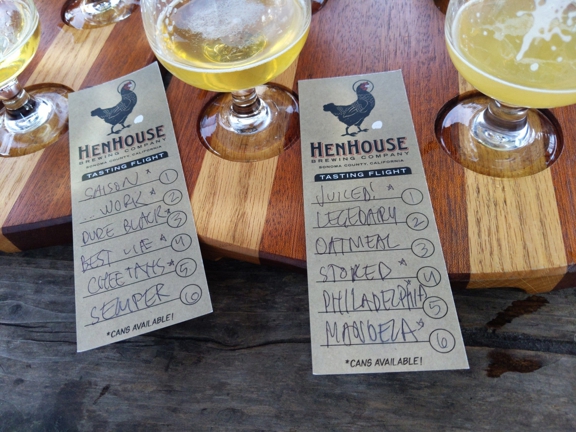 HENHOUSE
BREWING COMPANY
SONOMA COUNTY, CALIFORNIA
TASTING FLIGHT
SAISON * 1
... WORK * 2
PURE BLACK * 3
BEST LIFE * 4
CHEETAHS * 5
SEMPER 6
*CANS AVAILABLE!
HENHOUSE
BREWING COMPANY
SONOMA COUNTY, CALIFORNIA
TASTING FLIGHT
JUICED * 1
LEGENDARY 2
OATMEAL 3
STOKED * 4
PHILADELPHIA 5
MANDELA * 6
*CANS AVAILABLE!